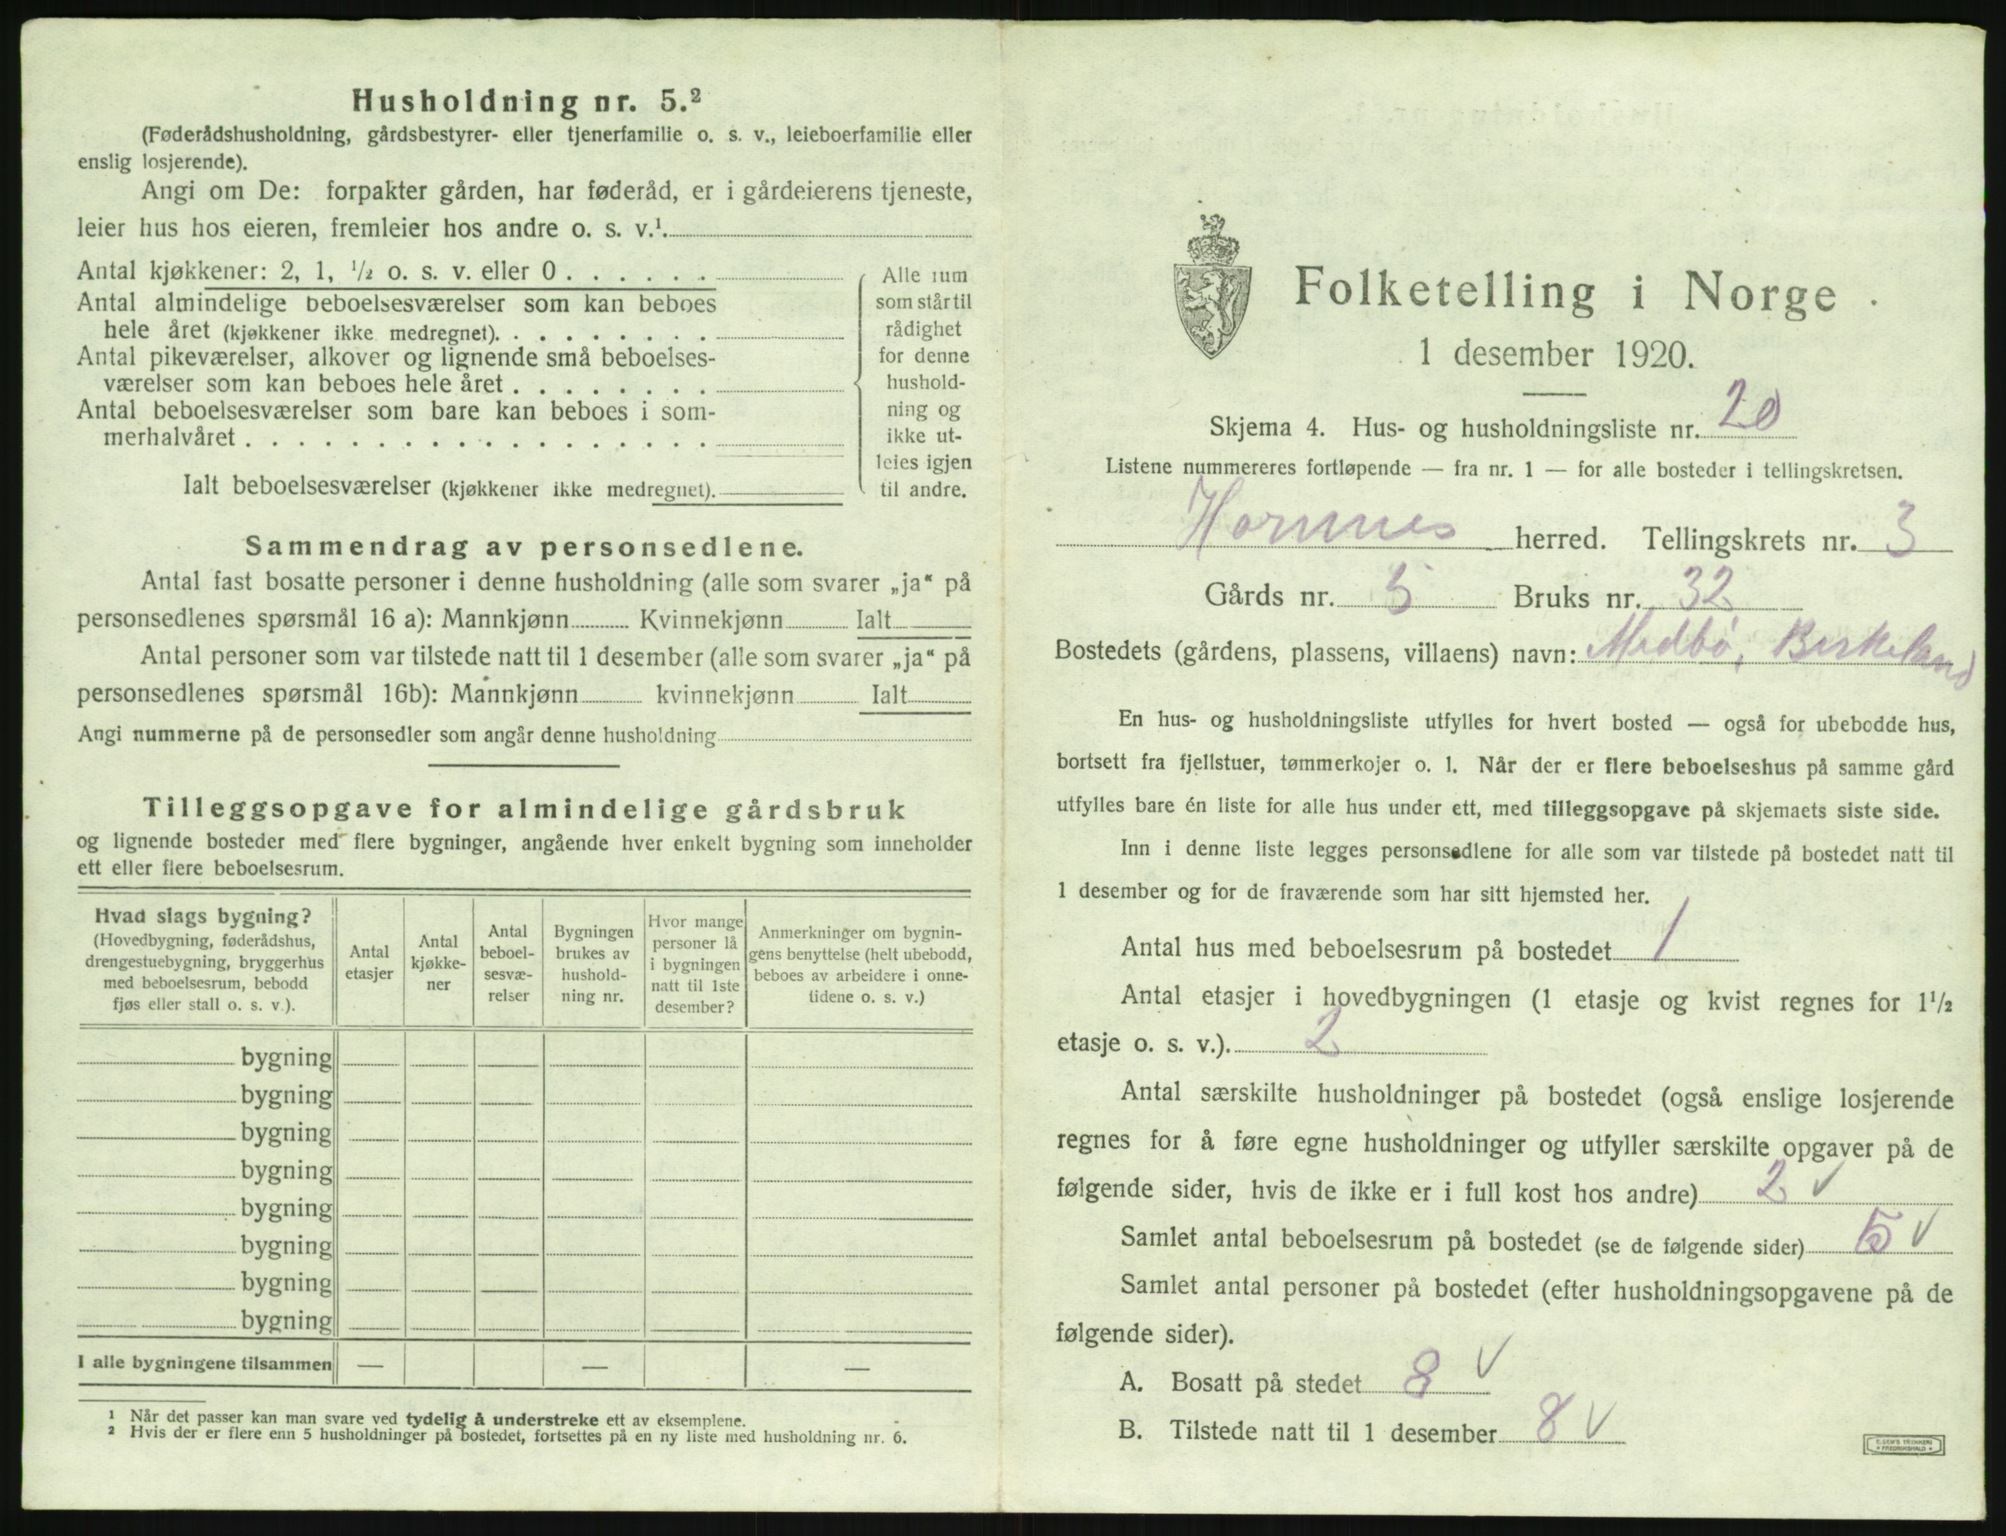 Husholdning nr. 5.²
(Føderådshusholdning, gårdsbestyrer- eller tjenerfamilie o. s. v., leieboerfamilie eller
enslig losjerende).
Angi om De: forpakter gården, har føderåd, er i gårdeierens tjeneste,
leier hus hos eieren, fremleier hos andre o. s. v.¹.
Antal kjøkkener: 2, 1, ½ o. s. v. eller 0 . . . . . .
Antal almindelige beboelsesværelser som kan beboes
hele året (kjøkkener ikke medregnet). . . . . . . . .
Antal pikeværelser, alkover og lignende små beboelses-
værelser som kan beboes hele året . . . . . . . .
Antal beboelsesværelser som bare kan beboes i som-
merhalvåret . . . . . . . . . . . . . . . . . .
Ialt beboelsesværelser (kjøkkener ikke medregnet).
Alle rum
som står til
rådighet
for denne
hushold-
ning og
ikke ut-
leies igjen
til andre.
Sammendrag av personsedlene.
Antal fast bosatte personer i denne husholdning (alle som svarer „ja“ på
personsedlenes spørsmål 16 a): Mannkjønn Kvinnekjønn Ialt
Antal personer som var tilstede natt til 1 desember (alle som svarer „ja“ på
personsedlenes spørsmål 16b): Mannkjønn kvinnekjønn Ialt
Angi nummerne på de personsedler som angår denne husholdning
Tilleggsopgave for almindelige gårdsbruk
og lignende bosteder med flere bygninger, angående hver enkelt bygning som inneholder
ett eller flere beboelsesrum.
Hvad slags bygning?
(Hovedbygning, føderådshus,
drengestuebygning, bryggerhus
med beboelsesrum, bebodd
fjøs eller stall o. s. v.).
Antal
etasjer
Antal
kjøkke-
ner
Antal
beboel-
sesvæ-
relser
Bygningen
brukes av
hushold-
ning nr.
Hvor mange
personer lå
i bygningen
natt til 1ste
desember?
Anmerkninger om bygnin-
gens benyttelse (helt ubebodd,
beboes av arbeidere i onne-
tidene o. s. v.)
bygning
bygning
bygning
bygning
bygning
bygning
bygning
bygning
I alle bygningene tilsammen — — —
¹ Når det passer kan man svare ved tydelig å understreke ett av eksemplene.
² Hvis der er flere enn 5 husholdninger på bostedet, fortsettes på en ny liste med husholdning nr. 6.
Folketelling i Norge
1 desember 1920.
Skjema 4. Hus- og husholdningsliste nr. 20
Listene nummereres fortløpende — fra nr. 1 — for alle bosteder i tellingskretsen.
Hornnes herred. Tellingskrets nr. 3
Gårds nr. 5 Bruks nr. 32
Bostedets (gårdens, plassens, villaens) navn: Medbö, Birkeland
En hus- og husholdningsliste utfylles for hvert bosted — også for ubebodde hus,
bortsett fra fjellstuer, tømmerkojer o. l. Når der er flere beboelseshus på samme gård
utfylles bare én liste for alle hus under ett, med tilleggsopgave på skjemaets siste side.
Inn i denne liste legges personsedlene for alle som var tilstede på bostedet natt til
1 desember og for de fraværende som har sitt hjemsted her.
Antal hus med beboelsesrum på bostedet 1
Antal etasjer i hovedbygningen (1 etasje og kvist regnes for 1½
etasje o. s. v.). 2
Antal særskilte husholdninger på bostedet (også enslige losjerende
regnes for å føre egne husholdninger og utfyller særskilte opgaver på de
følgende sider, hvis de ikke er i full kost hos andre) 2 √
Samlet antal beboelsesrum på bostedet (se de følgende sider) 5 √
Samlet antal personer på bostedet (efter husholdningsopgavene på de
følgende sider).
A. Bosatt på stedet 8 √
B. Tilstede natt til 1 desember 8 √